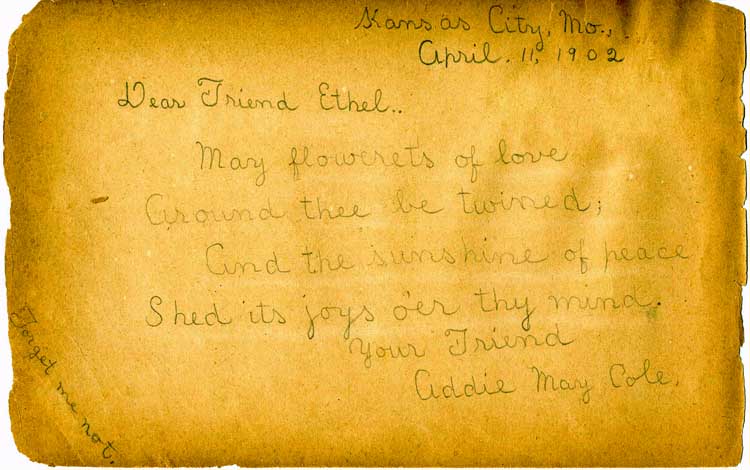 Kansas City, Mo.,
April. 11, 1902
Dear Friend Ethel..
May flowerets of love
Around thee be twined;
And the sunshine of peace
Shed its joys o'er thy mind.
Your Friend
Addie May Cole.
Forget me not.